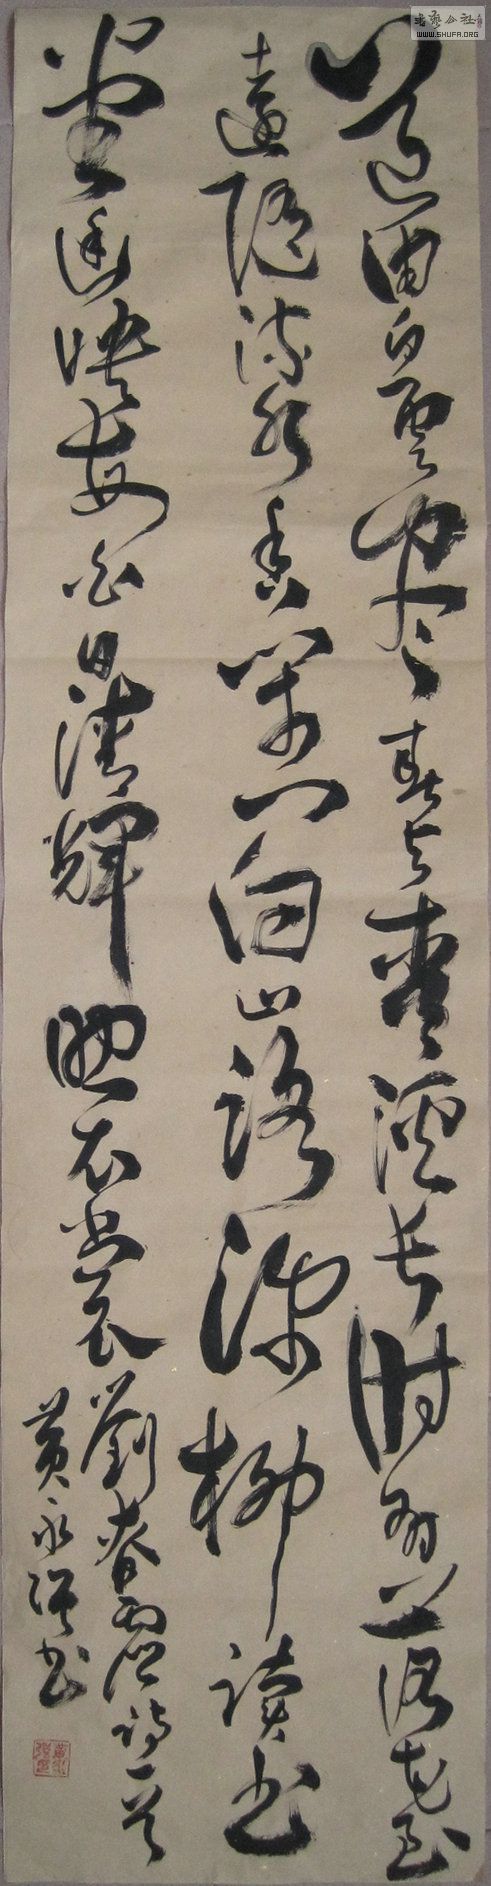 道由白雲盡春与青溪長時有落花至
遠隨流水香閑門向山路深柳讀書
堂幽映每白日清輝照衣裳
劉春虛詩一首
黃永强書
书艺公社
WWW.SHUFA.ORG